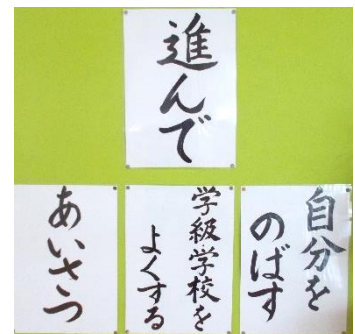 進んで
自分を
のばす
学級学校を
よくする
あいさつ